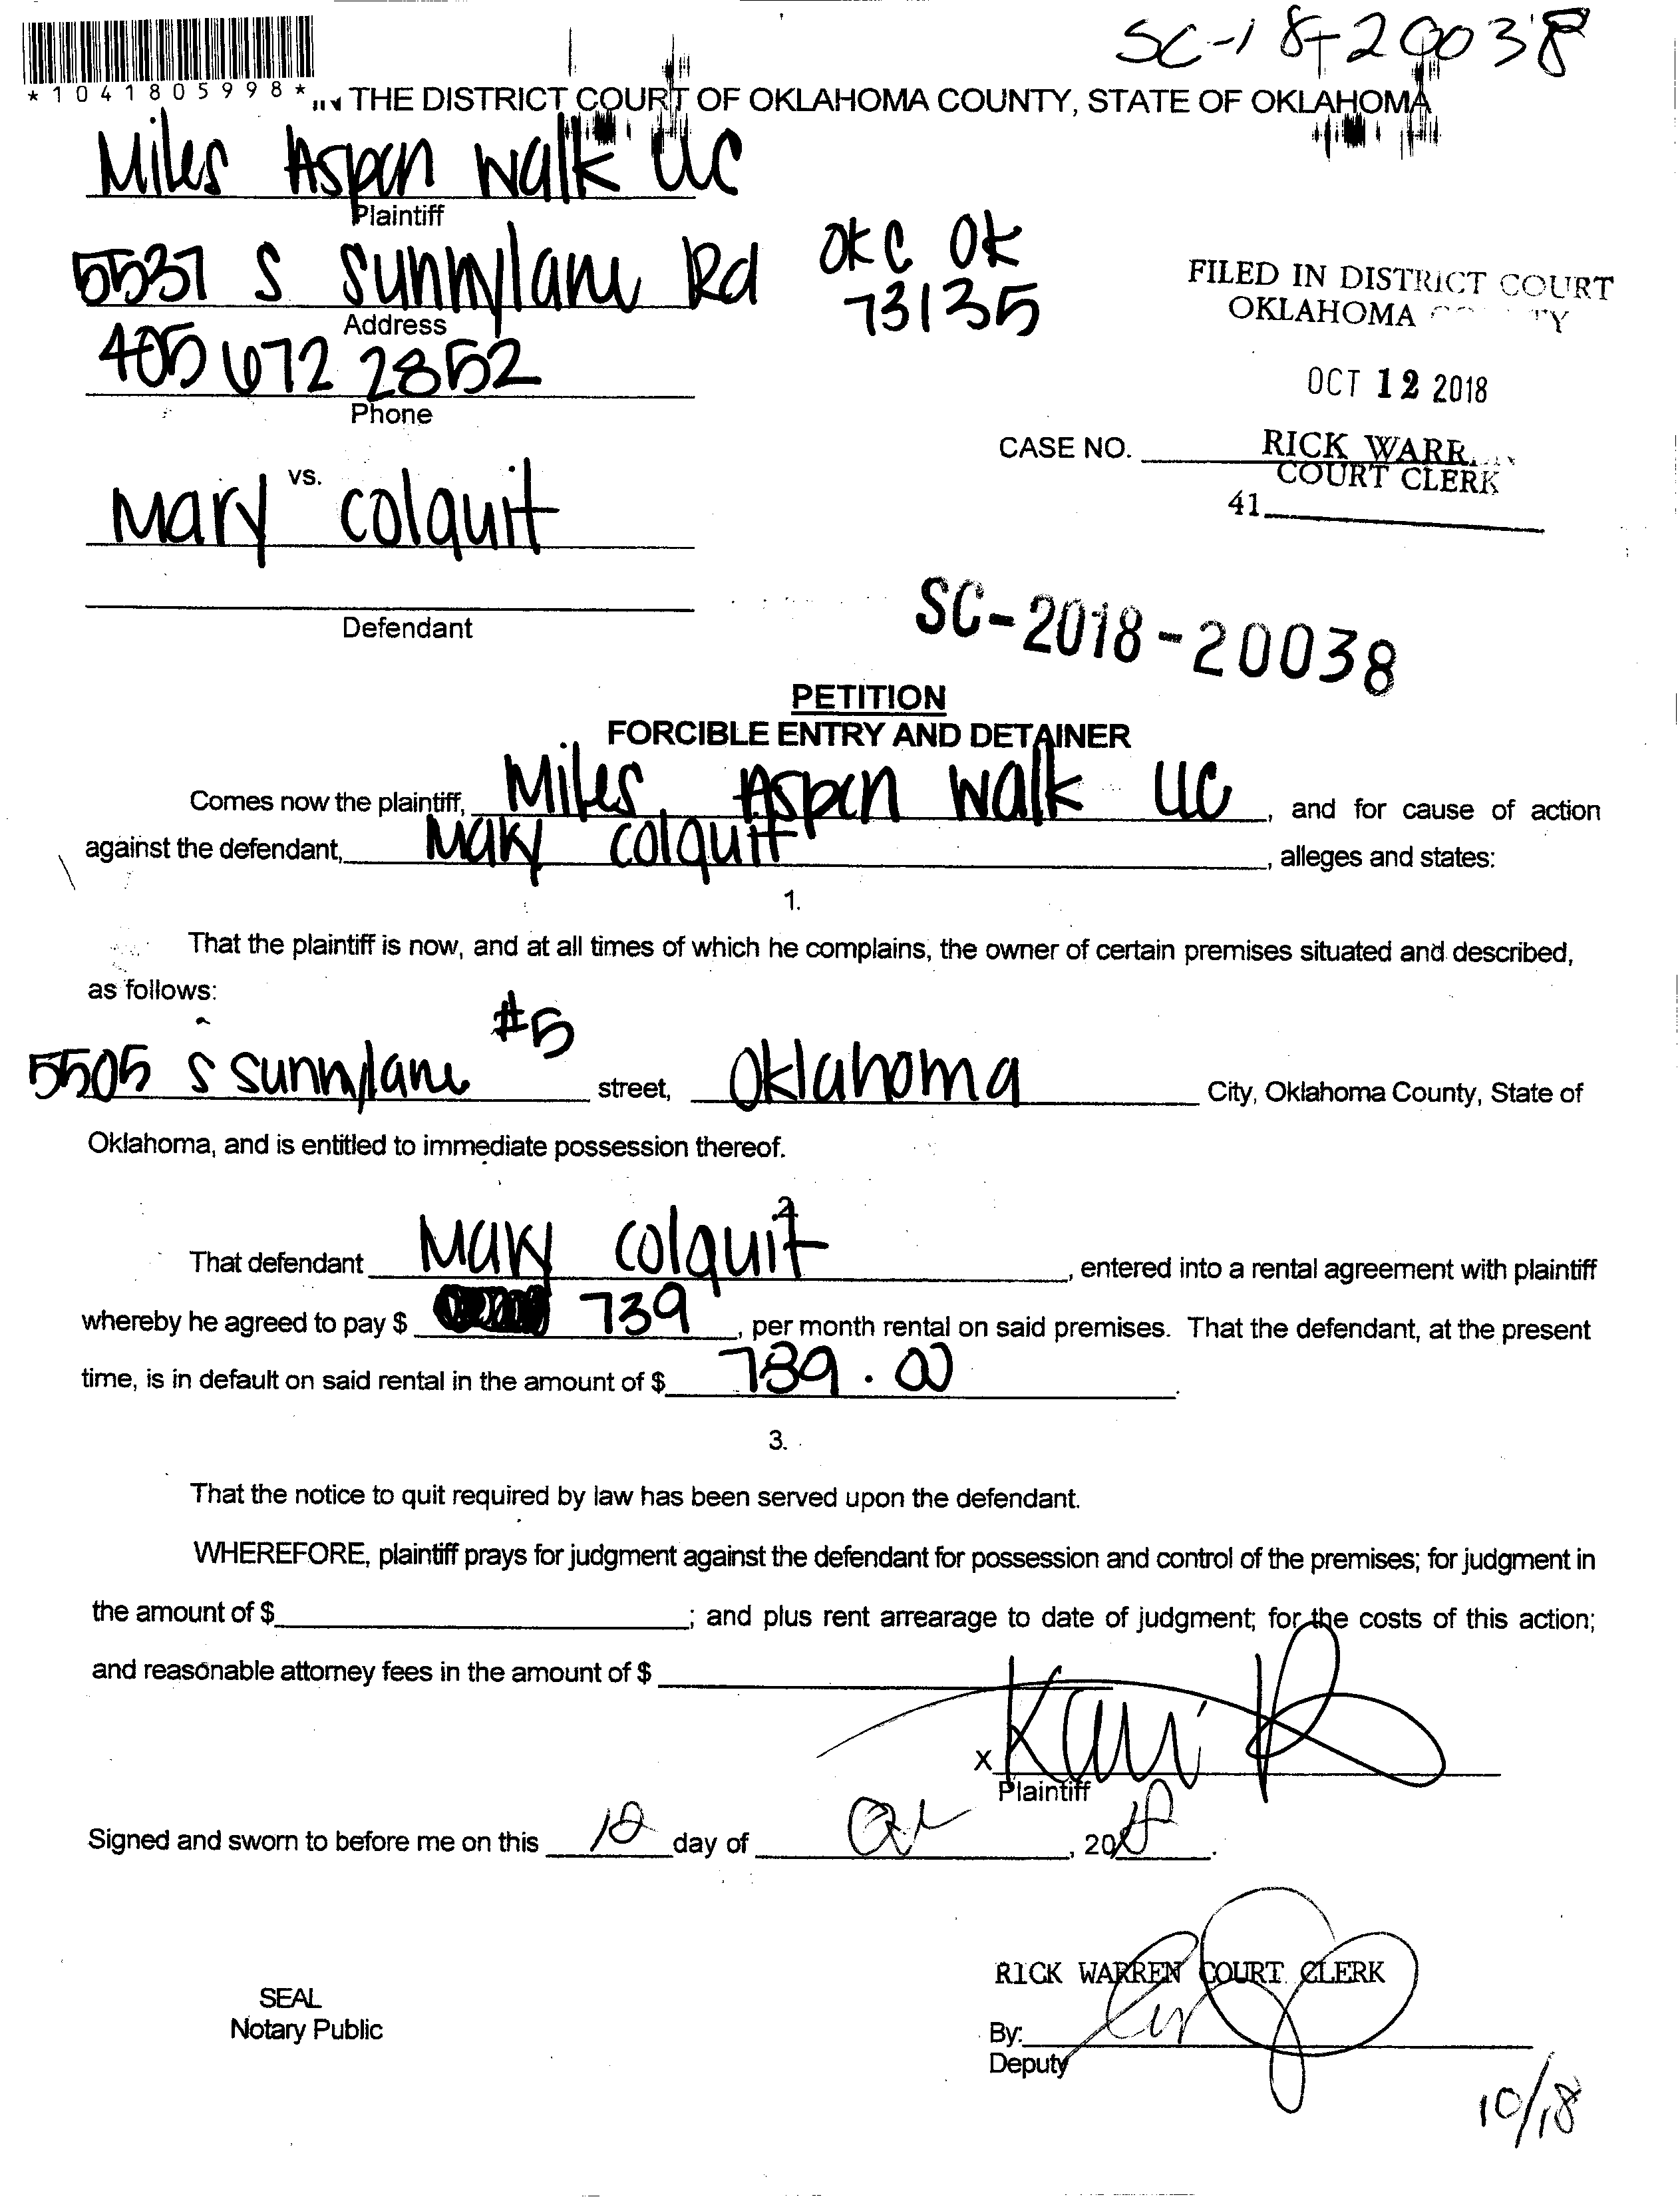 SC-18-20038
*1041805998*
IN THE DISTRICT COURT OF OKLAHOMA COUNTY, STATE OF OKLAHOMA
Miles Aspen Walk LLC
Plaintiff
5537 S Sunnylane Rd OKC OK
73135
Address
405 672 2852
Phone
FILED IN DISTRICT COURT
OKLAHOMA
OCT 12 2018
CASE NO.
RICK WARR
COURT CLERK
41
vs.
Mary Colquit
Defendant
SC-2018-20038
PETITION
FORCIBLE ENTRY AND DETAINER
Comes now the plaintiff, Miles Aspen Walk LLC, and for cause of action
against the defendant, Mary Colquit, alleges and states:
1.
That the plaintiff is now, and at all times of which he complains, the owner of certain premises situated and described,
as follows:
5505 S Sunnylane #5 street, Oklahoma City, Oklahoma County, State of
Oklahoma, and is entitled to immediate possession thereof.
2
That defendant Mary Colquit, entered into a rental agreement with plaintiff
whereby he agreed to pay $ 739, per month rental on said premises. That the defendant, at the present
time, is in default on said rental in the amount of $ 739.00.
3.
That the notice to quit required by law has been served upon the defendant.
WHEREFORE, plaintiff prays for judgment against the defendant for possession and control of the premises; for judgment in
the amount of $ ; and plus rent arrearage to date of judgment; for the costs of this action;
and reasonable attorney fees in the amount of $
X
Plaintiff
Signed and sworn to before me on this 12 day of Oct, 2018.
RICK WARREN COURT CLERK
SEAL
Notary Public
By:
Deputy
10/18